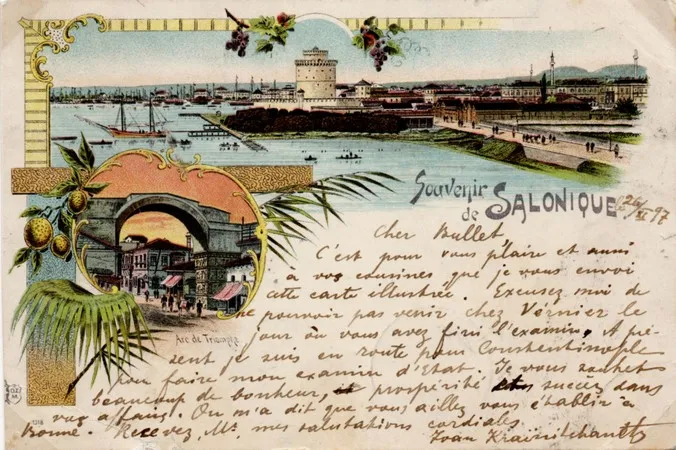 Souvenir
de SALONIQUE
26/XI 97
Cher Bullet
C'est pour vous plaire et aussi
à vos cousines que je vous envoi
cette carte illustrée. Excusez moi de
ne pouvoir pas venir chez Vernier le
jour où vous avez fini l'examin. A pé-
sent je suis en route pour Constentinople
pour faire mon examin d'Etat. Je vous souhet
beaucoup de bonheur, prospérité et succez dans
vos affaires. On m'a dit que vous ailles vous établir à
Bonne. Recevez, Mr. mes salutations cordiales
Arc de Triomphe